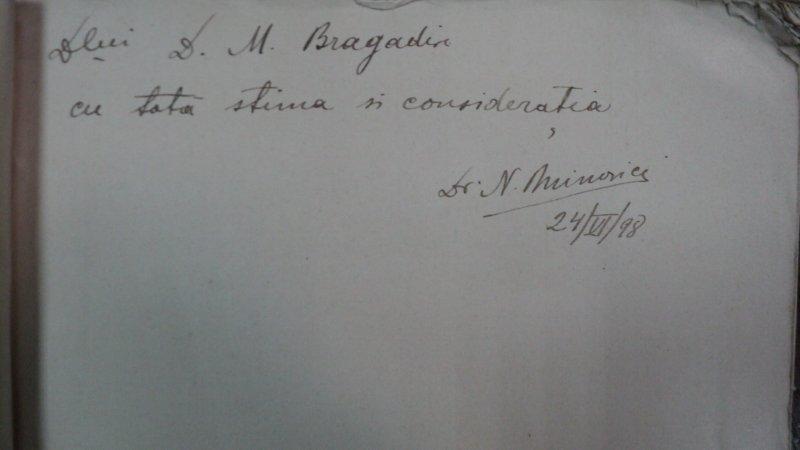 Dlui D. M. Bragadir
cu tota stima si consideraţia
Dr. N. Minovici
24/VI/98